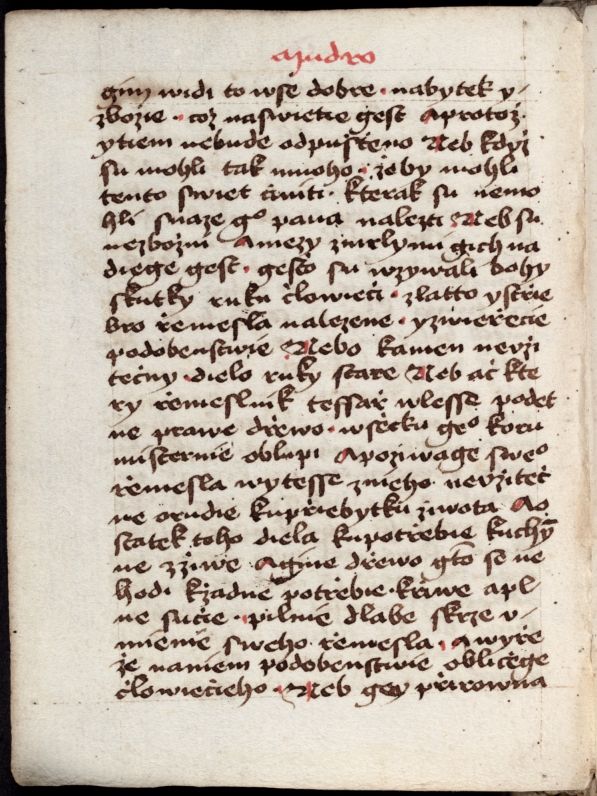 Mudro
gim widi to wse dobre · nabytek y-
zbozie · coz naswietie gest Aprotoz
ytiem nebude odpusťeno Neb kdyz
su mohli tak mnoho · żeby mohli
tento swiet ċiniti · kterak su nemo
hli snaze gº pana nalezti Neb su
nezbozni Amezy zmrlymi gich na
diege gest · gesto su wzywali bohy
skutky ruku ċlowieċi · zlatto ystrie
bro ṙemesla nalezene · yzwieṙecie
podobenstwie Nebo kamen neużi
teċny · dielo ruky stare Neb aċ kte
ry ṙemeslnik tessaṙ wlesse podet
ne prawe dṙewo · wsecku geº koru
misternie oblupi Apoziwage sweº
ṙemesla wytesse zneho neużiteċ
ne orudie kupṙiebytku żiwota Ao
statek toho diela kupotṙebie kuchy
ne zżiwe Agine dṙewo gto se ne
hodi kżadne potṙebie · kṙiwe apl
ne sucie · pilnie dlabe skrze v-
mienie sweho ṙemesla · Awyṙe
że naniem podobenstwie obliċege
ċlowieċieho · Neb gey pṙirowna